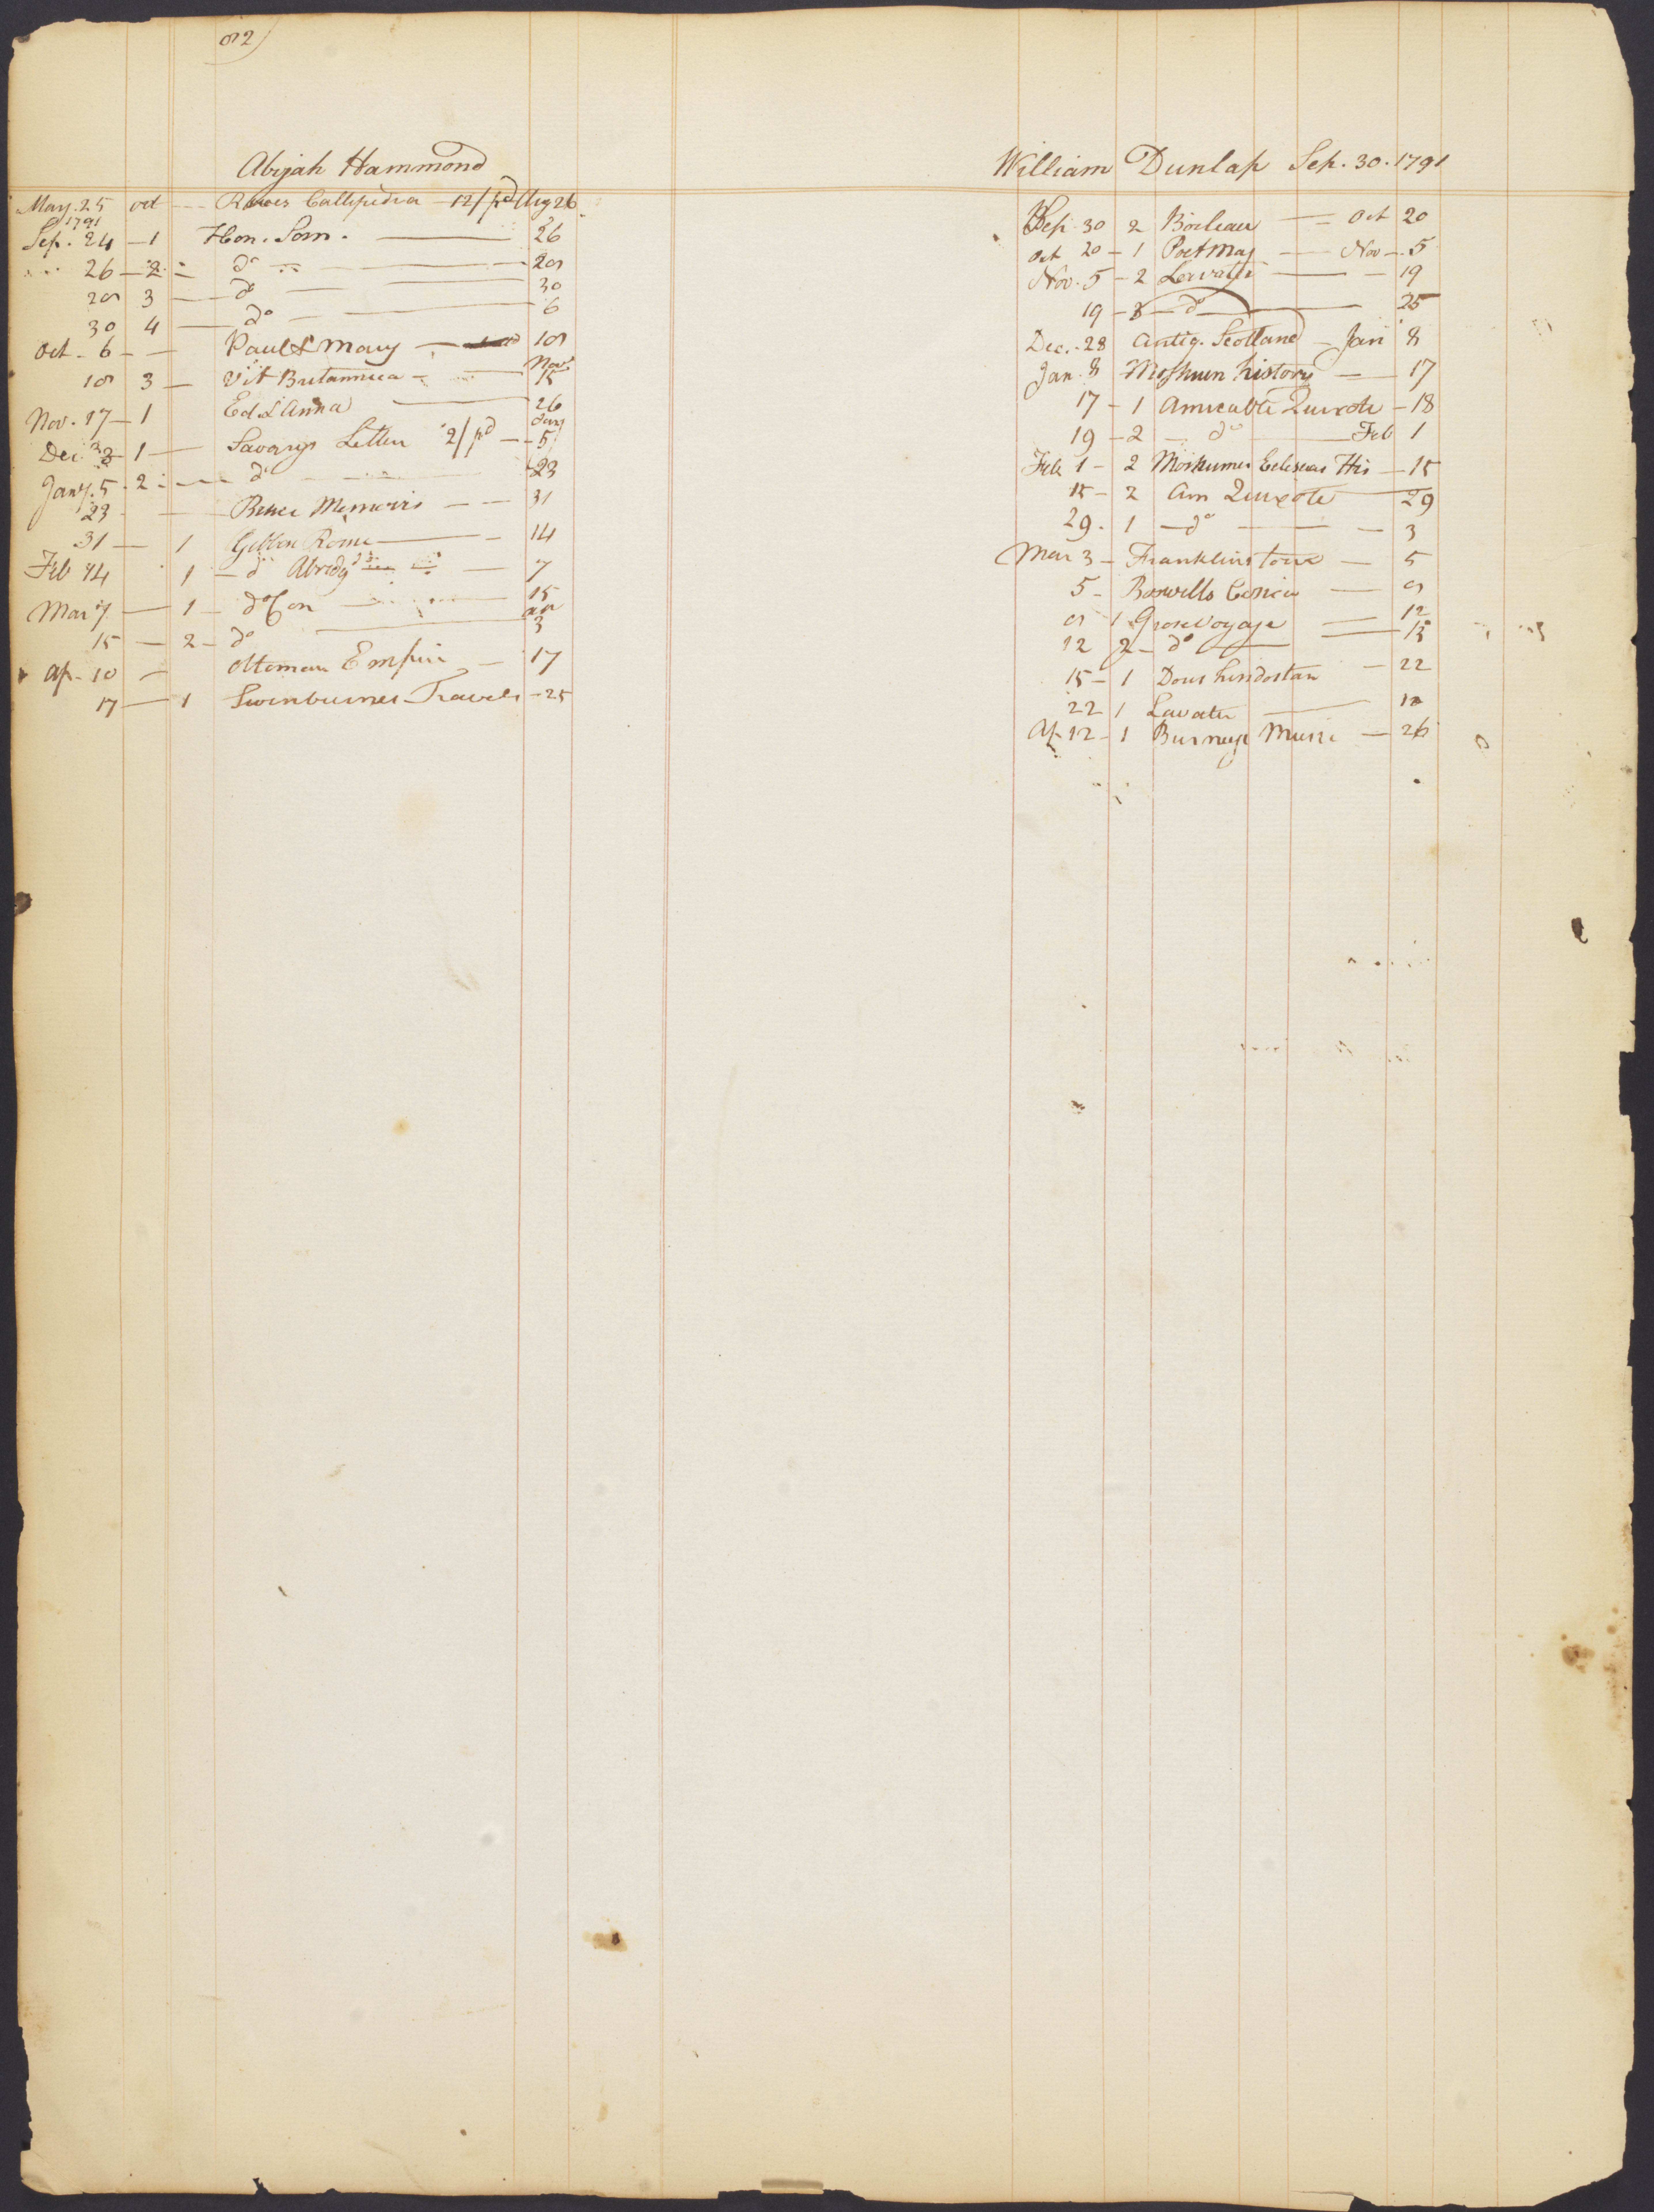 92
Abijah Hammond
May. 25 oct — Rowes Callipedia — 12/ pd Aug 26
1791
Sep. 24 — 1 Hon. Som. — 26
26 — 2 — do — 29
29 3 — do — 30
30 4 — do — 6
Oct — 6 — Paul & Mary — 19
Nov
19 3 — Vit Britannica — 15
Nov. 17 — 1 Ed. & Anna — 26
Jany
Dec. 1 — Savarys Letter 2/ pd — 5
Jany. 5 - 2 — do — 23
23 Memoirs — 31
31 — 1 Gibbon Rome — 14
Feb 14 1 — do Abridgd — 7
Mar 7 — 1 — do Con — 15
ap
15 — 2 — do — 3
Ap. 10 — Ottoman Empire — 17
17 — 1 Swinburnes Travels — 25
William Dunlap Sep. 30. 1791
Sep 30 2 Boileau — Oct 20
Oct 20 — 1 Poet Mag — Nov — 5
Nov. 5 — 2 Lavater — 19
19 — 3 — do — 25
Dec. - 28 Antiq. Scotland — Jan 8
Jan. 8 history — 17
17 — 1 Amicable Quixote — 18
19 — 2 — do — Feb 1
Feb 1 — 2 His — 15
15 — 2 Am Quixote — 29
29. 1 — do — 3
Mar 3 — Franklins tour — 5
5 — Boswells Corsica — 9
9 1 Grose Voyage — 12
12 2 — do — 15
15 — 1 Dows hindostan — 22
22 1 Lavater — 12
Ap 12 — 1 Burneys Music — 26